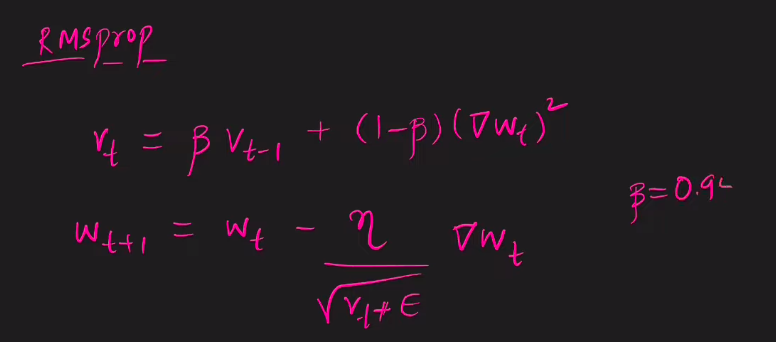 RMSprop
v_t = β v_{t-1} + (1-β) (∇w_t)²
β = 0.9
w_{t+1} = w_t - η / √(v_t + ε) ∇w_t